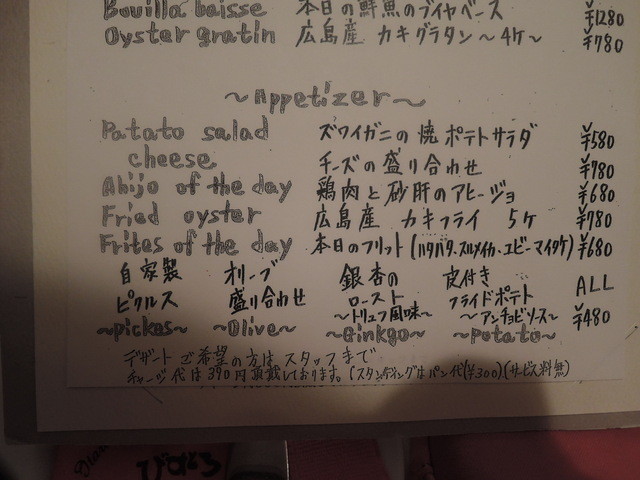 Bouillabaisse 本日の鮮魚のブイヤベース ¥1280
Oyster gratin 広島産 カキグラタン〜4ケ〜 ¥780
〜Appetizer〜
Patato salad ズワイガニの焼ポテトサラダ ¥580
cheese チーズの盛り合わせ ¥780
Ahijo of the day 鶏肉と砂肝のアヒージョ ¥680
Fried oyster 広島産 カキフライ 5ケ ¥780
Frites of the day 本日のフリット(ハタハタ、スルメイカ、エビ、マイタケ) ¥680
自家製 オリーブ 銀杏の 皮付き ALL
ピクルス 盛り合わせ ロースト フライドポテト
〜トリュフ風味〜 〜アンチョビソース〜 ¥480
〜pickes〜 〜Olive〜 〜Ginkgo〜 〜Potato〜
デザートご希望の方は、スタッフまで
チャージ代は390円頂戴しております。(スタンディングはパン代(¥300)(サービス料無)